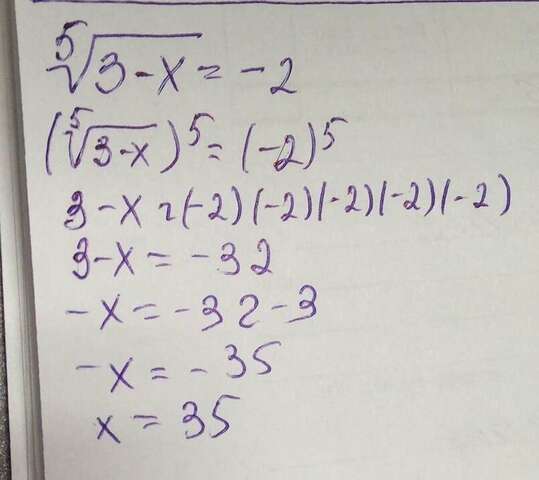 ⁵√(3-x) = -2
(⁵√(3-x))⁵ = (-2)⁵
3-x = (-2)(-2)(-2)(-2)(-2)
3-x = -32
-x = -32-3
-x = -35
x = 35